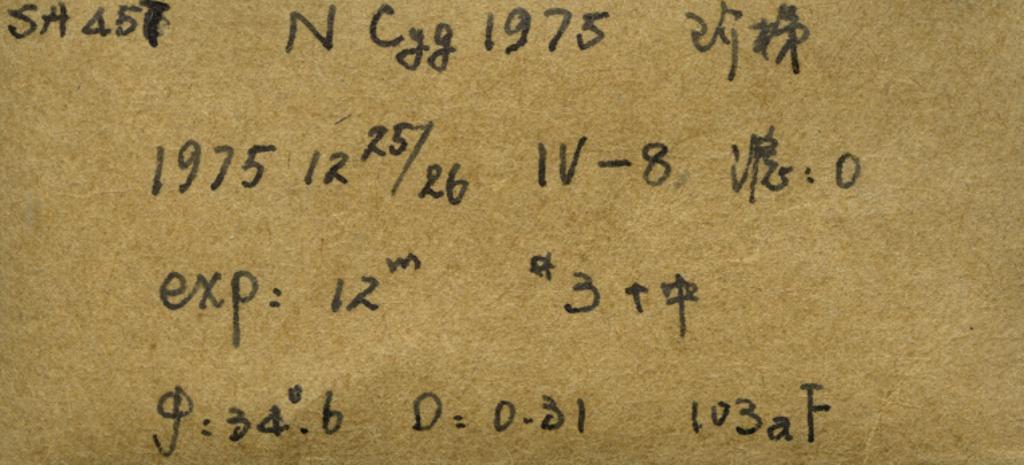 SH 457 N Cyg 1975
1975 12 25/26 IV-8 滤:0
exp: 12ᵐ #3+中
φ:34°.6 D=0.31 103aF